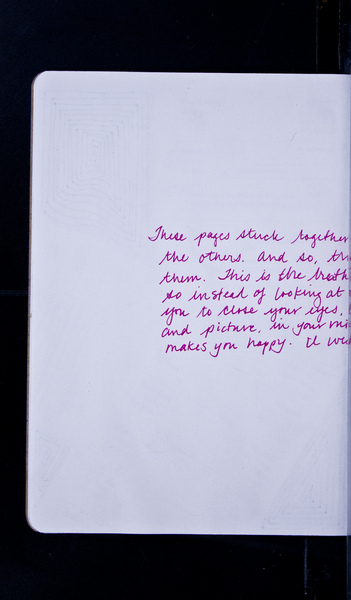 These pages stuck together
the others. And so,
them. This is the truth
so instead of looking at
you to close your eyes,
and picture, in your
makes you happy. I